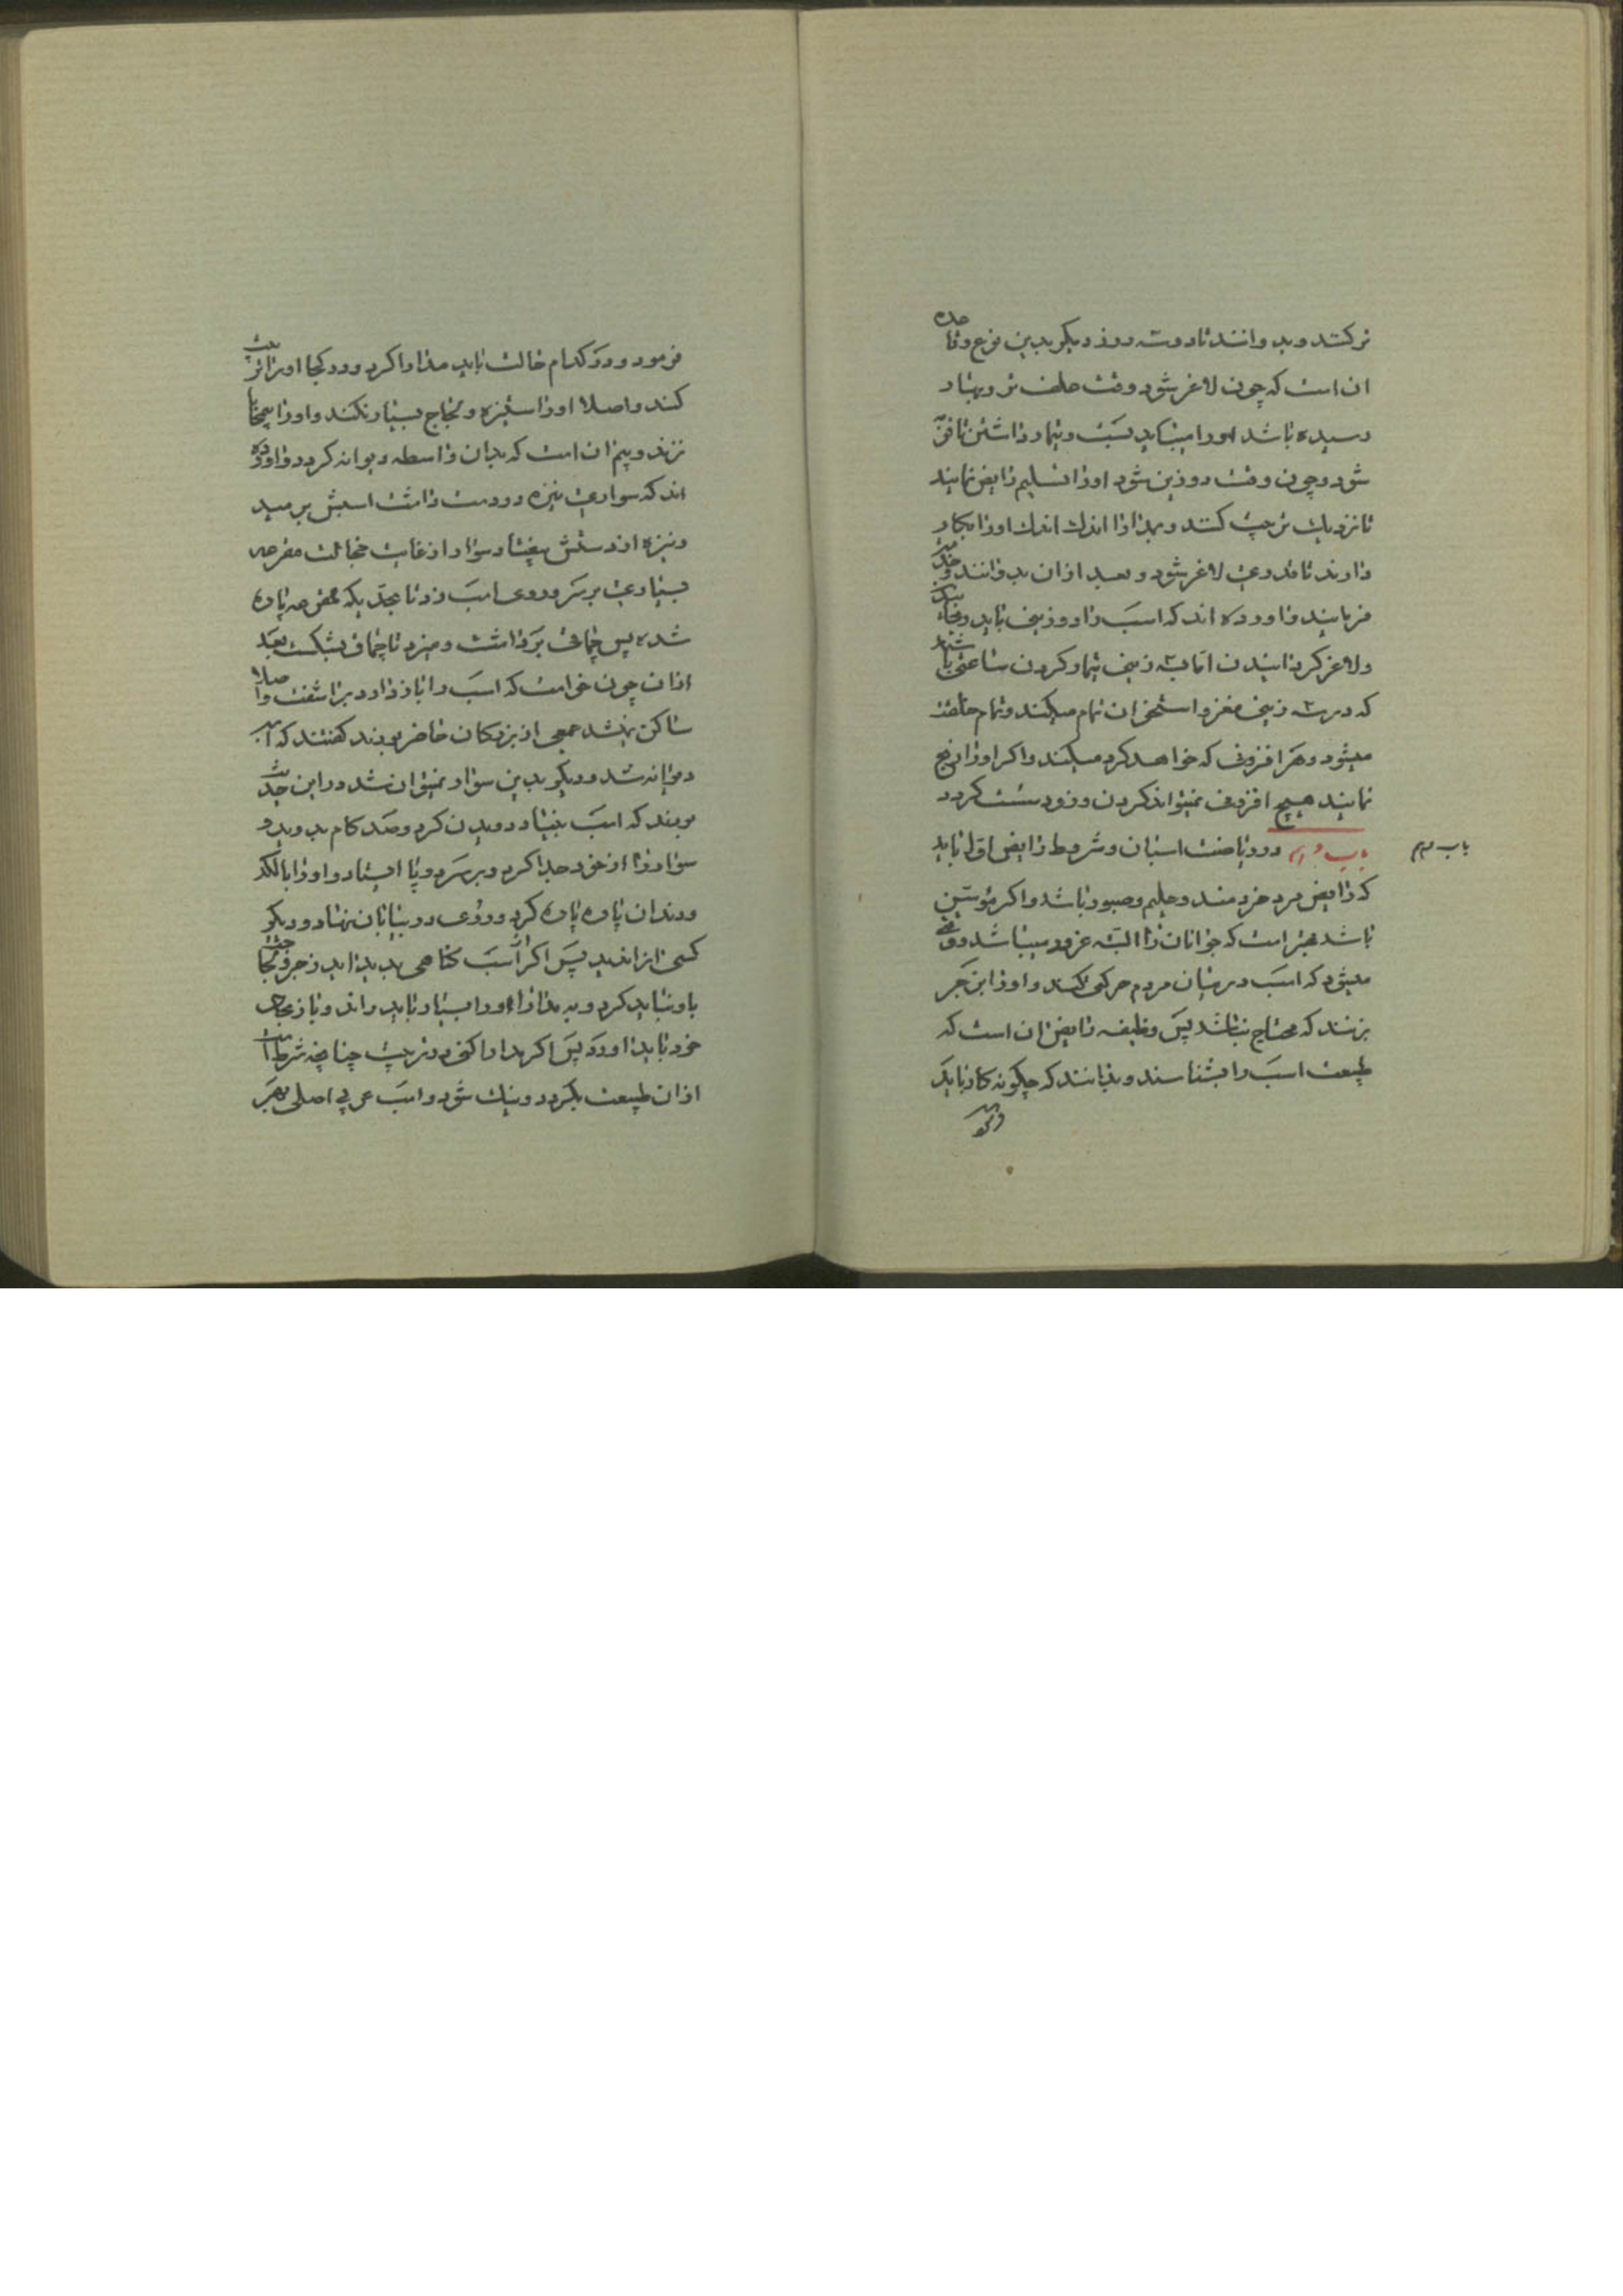 تر کنند و بدوانند تا دو سه روز دیگر بدین نوع و فا
ان است که چون لاغر شود وقت علف تر و بهار
رسیده باشد او را میباید بست و تیمار داشتن تا فربه
شود و چون وقت دو زین شود او را تسلیم رایض نمایند
تا نزدیک تربیت کند و بمدارا اندک اندک او را بکار
دارند تا قدری لاغر شود و بعد ازان بدوانند و
فربانند و اورده اند که اسب را دو زینی باید
و لاغر گردانیدن اما سه زینی تیمار کردن
که در سه زینی مغز و استخوان تمام میکند و تمام خلقت
میشود و هر افزونی که خواهد کرد میکند و اکر او را رنج
نمایند هیچ افزونی نمیتواند کردن و زود سست کردد
باب دوم در ریاضت اسبان و شروط رایض اول باید
باب دوم
که رایض مرد خردمند و حلیم و صبور باشد و اکر
باشد بهتر است که جوانان را البته غرور میباشد و وقتی
میشود که اسب در میان مردم حرکتی کند و او را
بزنند که محتاج نباشد پس وظیفه رایض ان است که
طبیعت اسب را بشناسند و بدانند که چکونه کار باید
فرمود و در کدام حالت باید مدارا کرد و در کجا او را
کند و اصلا او را ستیزه و لجاج بسیار نکند و او را
نزند و بیم ان است که بدان واسطه دیوانه کردد و اورده
اند که سواری نیزه در دست داشت اسبش برمید
و نیزه از دستش بیفتاد سوار از غایت خجالت مقرعه
بسیاری بر سر و روی اسب زد تا بحدیکه مقرعه پاره
شده پس چماقی برداشت و میزد تا چماق بشکست بعد
ازان چون خواست که اسب را باز دارد براشفت و اصلا
ساکن نمیشد جمعی از بزرکان حاضر بودند کفتند که
دیوانه شد و دیکر بدین سوار نمیتوان شد در این
بودند که اسب بنیاد دویدن کرد و صد کام بدوید و
سوار را از خود جدا کرد و بر سر دو پا ایستاد و او را با لکد
و دندان پاره پاره کرد و روی در بیابان نهاد و دیکر
کسی او را ندید پس اکر از اسب کناهی پدید اید زجر
باو نباید کرد و به مدارا او را بسیار باید راند و باز بجای
خود باید اورد پس اکر مدارا کنی در تربیت چنانچه شرط است
ازان طبیعت بکردد و نیک شود و اسب عربی اصلی